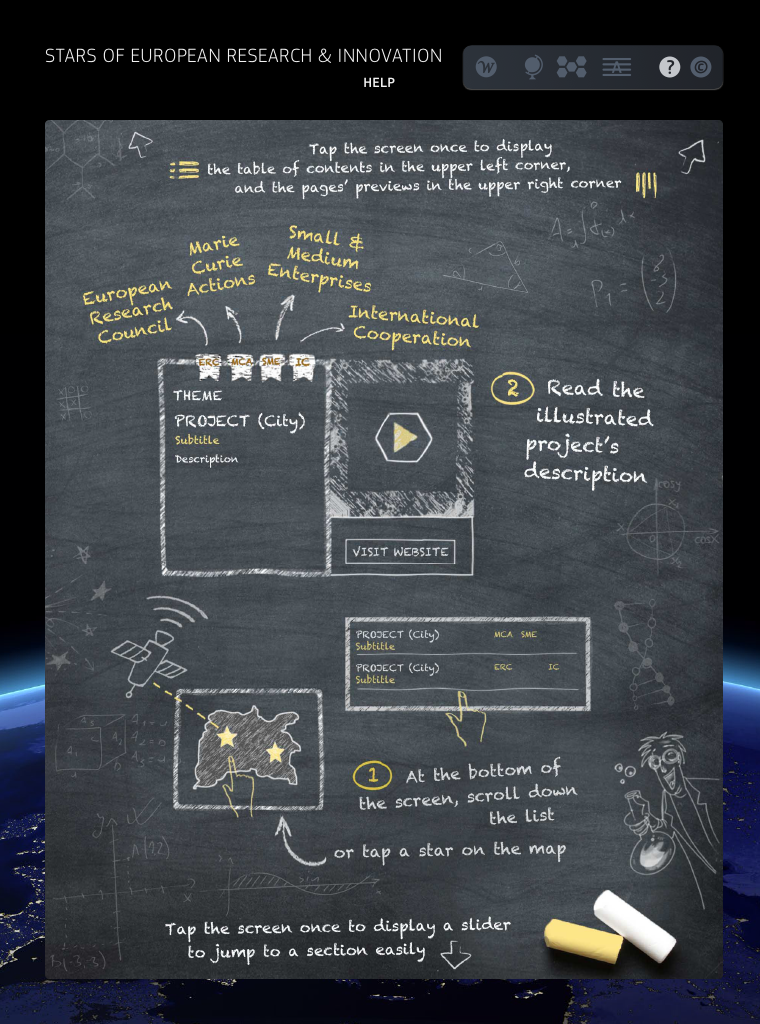 STARS OF EUROPEAN RESEARCH & INNOVATION
HELP
W
A
?
©
Tap the screen once to display
the table of contents in the upper left corner,
and the pages' previews in the upper right corner
Small &
Medium
Enterprises
Marie
Curie
Actions
European
Research
Council
International
Cooperation
ERC MCA SME IC
THEME
PROJECT (City)
Subtitle
Description
VISIT WEBSITE
2 Read the
illustrated
project's
description
cosy
cosx
PROJECT (City) MCA SME
Subtitle
PROJECT (City) ERC IC
Subtitle
1 At the bottom of
the screen, scroll down
the list
or tap a star on the map
Tap the screen once to display a slider
to jump to a section easily